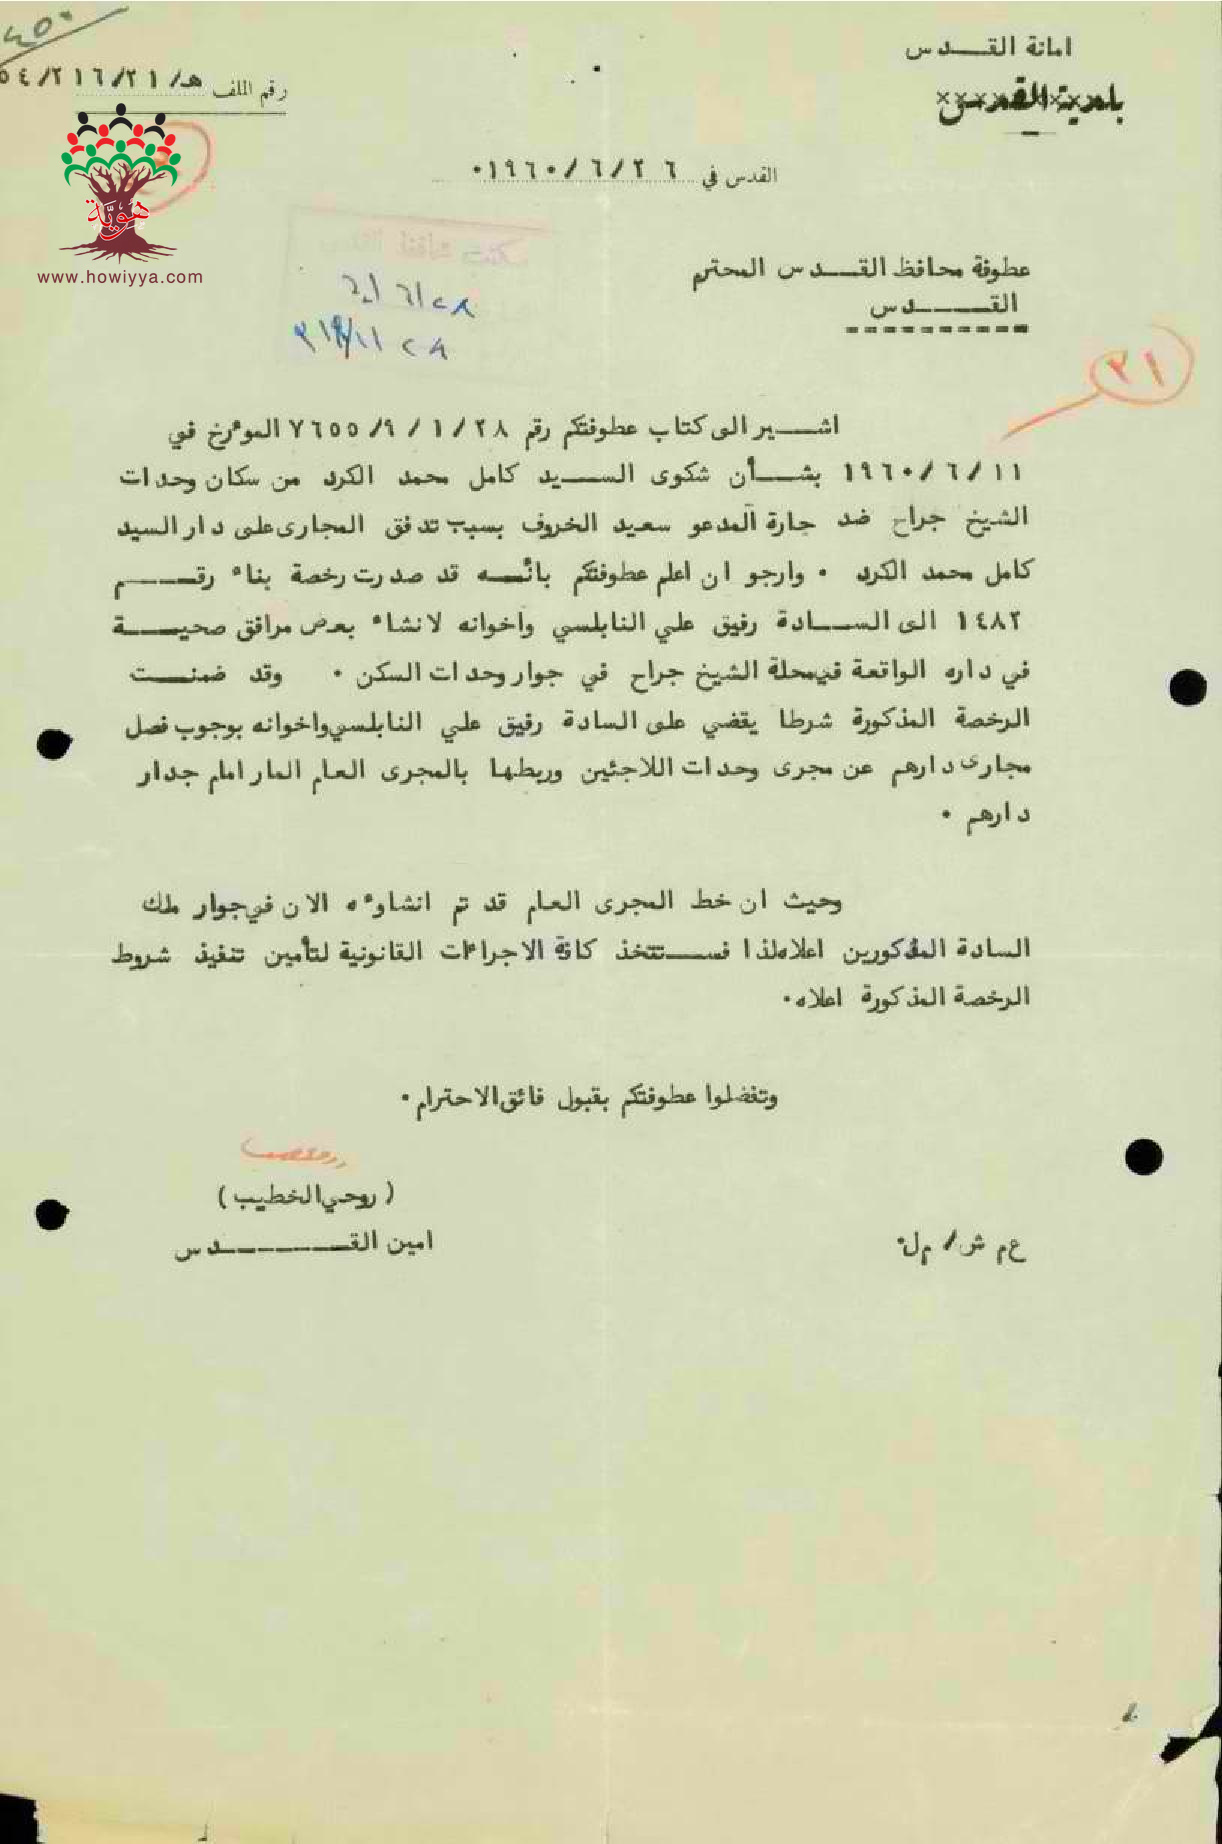 امانة القـــدس
بلدية القدس
٤٥٠
رقم الملف هـ/٢١/٢١٦/٥٤
هويّة
www.howiyya.com
القدس في ٢٦/٦/١٩٦٠٠
مكتب محافظ القدس
٢٨/٦/٦٠
٢٨/١١/٣١٩
عطوفة محافظ القـــدس المحترم
القــــدس
٣١
اشـــير الى كتاب عطوفتكم رقم ٢٨/١/٩/٧٦٥٥ الموءرخ في
١١/٦/١٩٦٠ بشـــأن شكوى الســـيد كامل محمد الكرد من سكان وحدات
الشيخ جراح ضد جارة المدعو سعيد الخروف بسبب تدفق المجارى على دار السيد
كامل محمد الكرد ٠ وارجو ان اعلم عطوفتكم بانـــه قد صدرت رخصة بناء رقـــــم
١٤٨٢ الى الســـادة رفيق علي النابلسي واخوانه لانشاء بعض مرافق صحيـــة
في داره الواقعة في محلة الشيخ جراح في جوار وحدات السكن ٠ وقد ضمنـــت
الرخصة المذكورة شرطا يقضي على السادة رفيق علي النابلسي واخوانه بوجوب فصل
مجارى دارهم عن مجرى وحدات اللاجئين وربطها بالمجرى العام المار امام جدار
دارهم ٠
وحيث ان خط المجرى العام قد تم انشاوءه الان في جوار ملك
السادة المذكورين اعلاه لذا فســـتتخذ كافة الاجراءات القانونية لتأمين تنفيذ شروط
الرخصة المذكورة اعلاه٠
وتفضلوا عطوفتكم بقبول فائق الاحترام٠
(روحي الخطيب)
امين القـــــــدس
ع م ش/ م ل٠